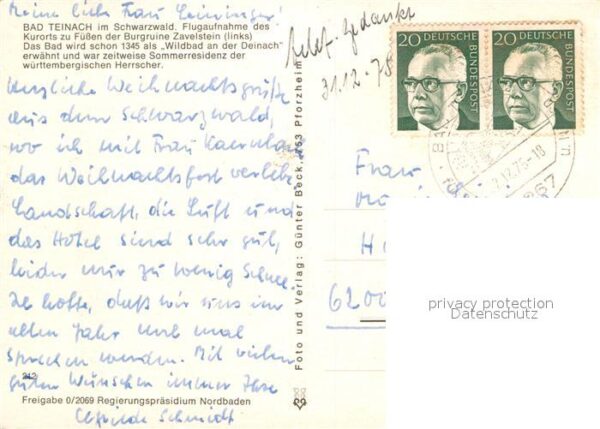 Meine liebe Frau Leininger!
BAD TEINACH im Schwarzwald. Flugaufnahme des
Kurorts zu Füßen der Burgruine Zavelstein (links)
Das Bad wird schon 1345 als „Wildbad an der Deinach"
erwähnt und war zeitweise Sommerresidenz der
württembergischen Herrscher.
Herzliche Weihnachtsgrüße
aus dem Schwarzwald,
wo ich mit Frau
das Weihnachtsfest verlebe.
Landschaft, die Luft und
das Hotel sind sehr gut,
leider nur zu wenig Schnee.
Ich hoffe, daß wir uns im
alten Jahr noch mal
sprechen werden. Mit vielen
guten Wünschen immer Ihre
212
Freigabe 0/2069 Regierungspräsidium Nordbaden
Schmidt
Foto und Verlag: Günter Beck, 753 Pforzheim
telef. gedankt
31.12.75
20 DEUTSCHE BUNDESPOST
20 DEUTSCHE BUNDESPOST
Frau
H
6200
privacy protection
Datenschutz